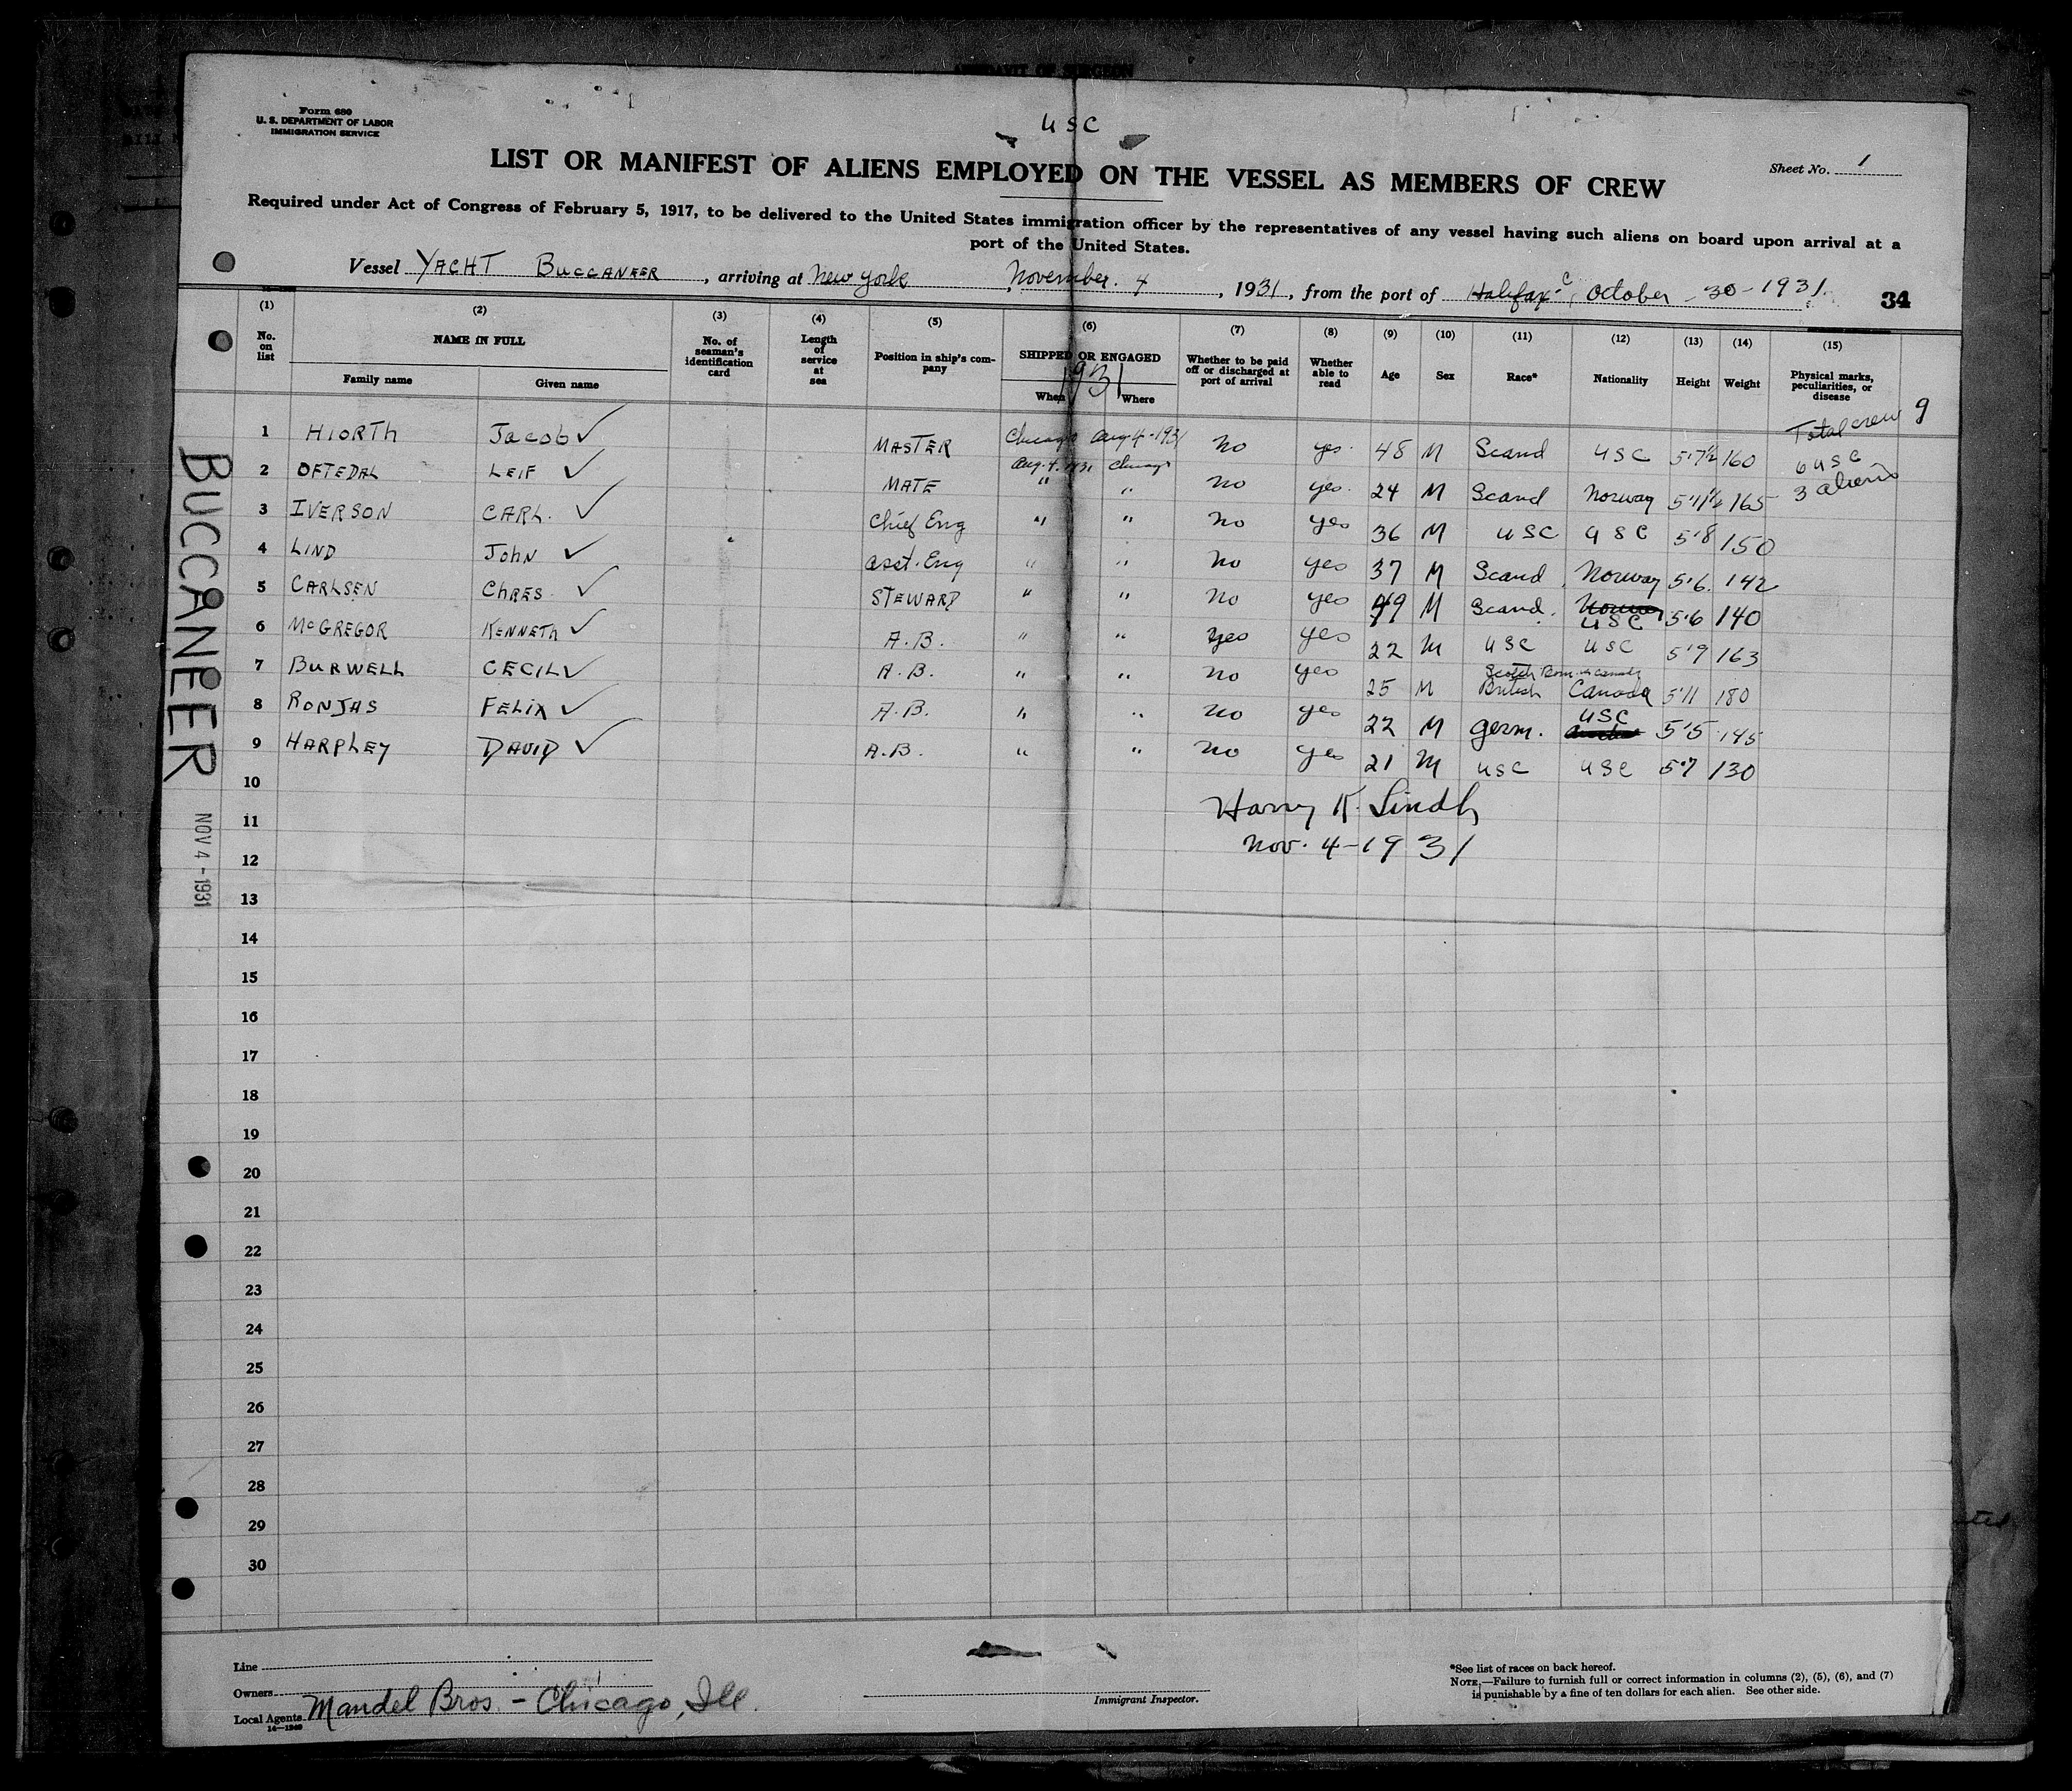 AFFIDAVIT OF SURGEON
Form 680
U. S. DEPARTMENT OF LABOR
IMMIGRATION SERVICE
USC
Sheet No. 1
LIST OR MANIFEST OF ALIENS EMPLOYED ON THE VESSEL AS MEMBERS OF CREW
Required under Act of Congress of February 5, 1917, to be delivered to the United States immigration officer by the representatives of any vessel having such aliens on board upon arrival at a
port of the United States.
Vessel YACHT BUCCANEER, arriving at New York November. 4, 1931, from the port of Halifax October 30-1931.
34
(1) (2) (3) (4) (5) (6) (7) (8) (9) (10) (11) (12) (13) (14) (15)
No. on list NAME IN FULL Family name Given name No. of seaman's identification card Length of service at sea Position in ship's company SHIPPED OR ENGAGED 1931 When Where Whether to be paid off or discharged at port of arrival Whether able to read Age Sex Race* Nationality Height Weight Physical marks, peculiarities, or disease
Total crew 9
6 USC
3 aliens
1 HIORTH Jacob ✓ MASTER Chicago Aug-4-1931 No yes. 48 M Scand USC 5'7½ 160
2 OFTEDAL LEIF ✓ MATE Aug. 4. 1931 Chicago " " No yes. 24 M Scand Norway 5'11½ 165
3 IVERSON CARL. ✓ Chief Eng " " No yes 36 M USC USC 5'8 150
4 LIND JOHN ✓ Asst. Eng " " No yes 37 M Scand Norway 5'6. 142
5 CARLSEN CHRES ✓ STEWARD " " No yes 49 M Scand. Norway USC 5'6 140
6 McGREGOR KENNETH ✓ A.B. " " Yes yes 22 M USC USC 5'9 163
7 BURWELL CECIL ✓ A.B. " " No yes 25 M Scotch Born in Canada British Canada 5'11 180
8 RONJAS FELIX ✓ A.B. " " No yes 22 M Germ. USC 5'5 145
9 HARPLEY DAVID ✓ A.B. " " No yes 21 M USC USC 5'7 130
10
Harry K. Lindh
11
Nov. 4-1931
12
13
14
15
16
17
18
19
20
21
22
23
24
25
26
27
28
29
30
BUCCANEER
NOV 4 - 1931
Line
Owners
Local Agents Mandel Bros. - Chicago, Ill.
14-1949
Immigrant Inspector.
*See list of races on back hereof.
NOTE.—Failure to furnish full or correct information in columns (2), (5), (6), and (7)
is punishable by a fine of ten dollars for each alien. See other side.